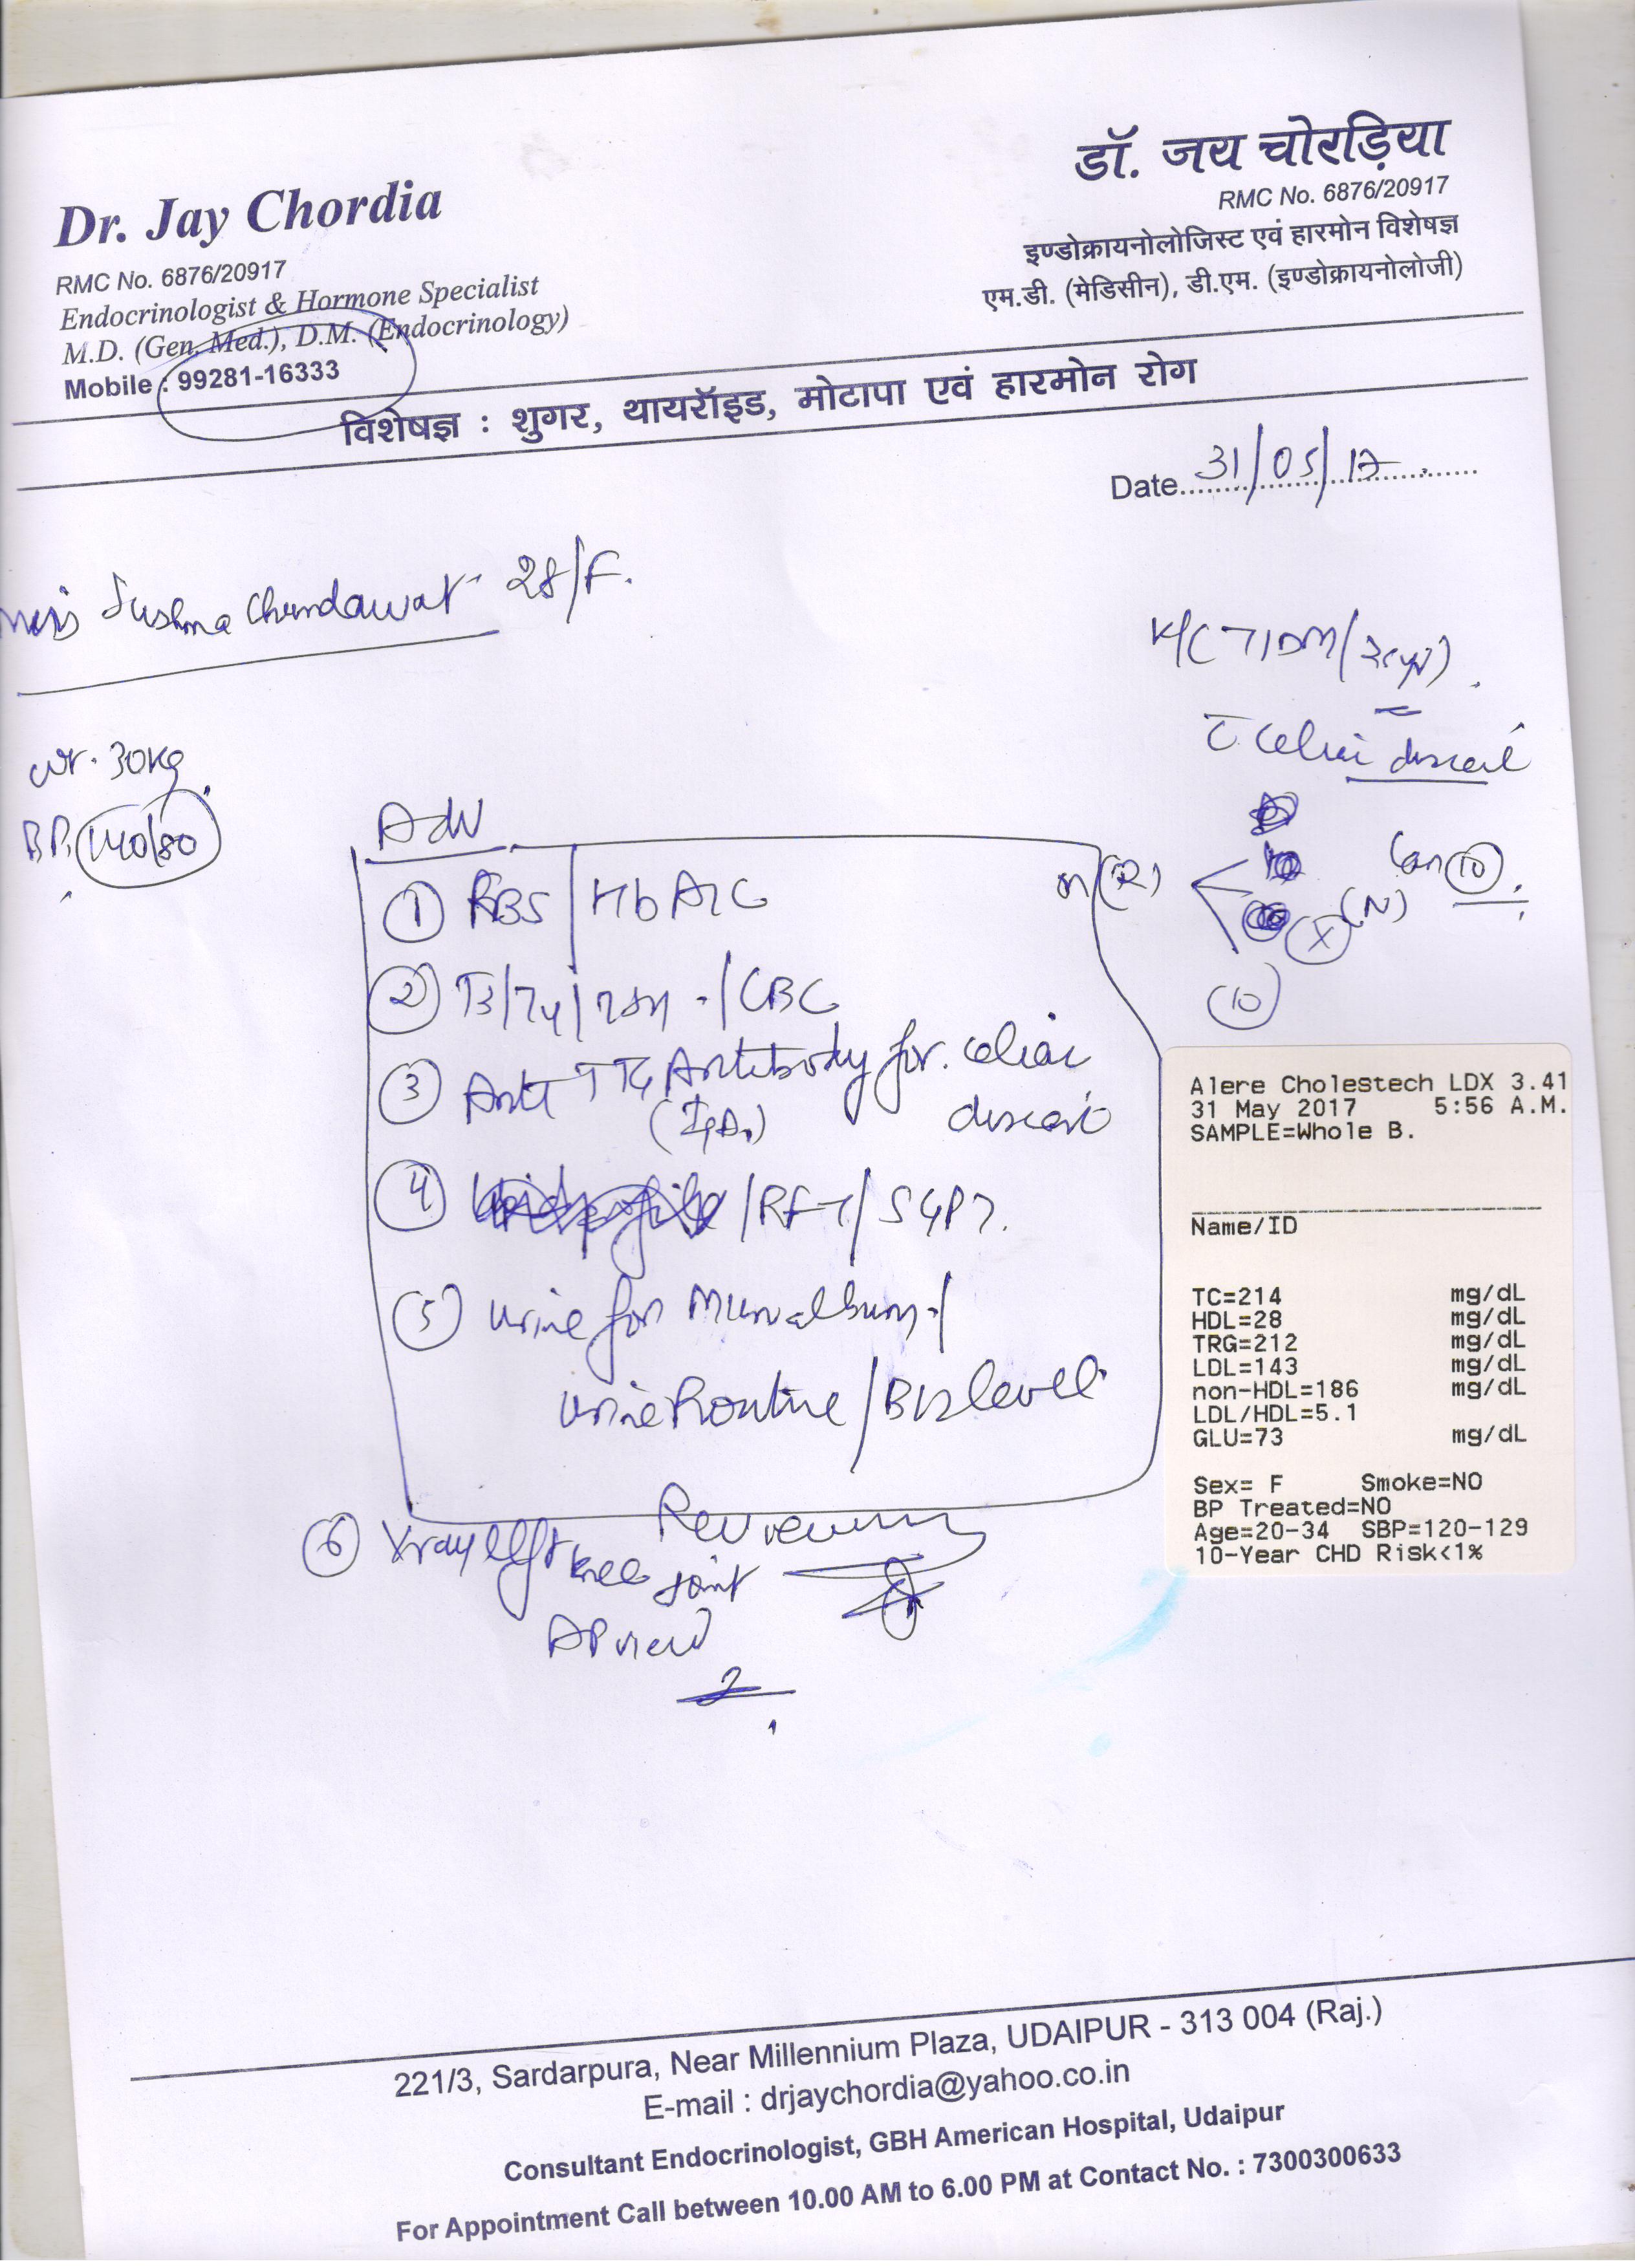 Dr. Jay Chordia
RMC No. 6876/20917
Endocrinologist & Hormone Specialist
M.D. (Gen. Med.), D.M. (Endocrinology)
Mobile : 99281-16333
डॉ. जय चोरड़िया
RMC No. 6876/20917
इण्डोक्रायनोलोजिस्ट एवं हारमोन विशेषज्ञ
एम.डी. (मेडिसीन), डी.एम. (इण्डोक्रायनोलोजी)
विशेषज्ञ : शुगर, थायरॉइड, मोटापा एवं हारमोन रोग
Date 31/05/17
Sushma Chundawat 28/F.
K/C T1DM
Celiac disease
wt. 30kg
BP. 140/80
Adv
m(R)
Lan 10
(N)
X
(10)
① RBS/HbA1C
② T3/T4/TSH /CBC
③ Anti TTG Antibody for celiac
(IgA) disease
④ /RFT/SGPT.
⑤ Urine for
Urine Routine/B12 level
Review
⑥ Xray left knee joint
AP view
Alere Cholestech LDX 3.41
31 May 2017 5:56 A.M.
SAMPLE=Whole B.
Name/ID
TC=214 mg/dL
HDL=28 mg/dL
TRG=212 mg/dL
LDL=143 mg/dL
non-HDL=186 mg/dL
LDL/HDL=5.1
GLU=73 mg/dL
Sex= F Smoke=NO
BP Treated=NO
Age=20-34 SBP=120-129
10-Year CHD Risk<1%
221/3, Sardarpura, Near Millennium Plaza, UDAIPUR - 313 004 (Raj.)
E-mail : drjaychordia@yahoo.co.in
Consultant Endocrinologist, GBH American Hospital, Udaipur
For Appointment Call between 10.00 AM to 6.00 PM at Contact No. : 7300300633